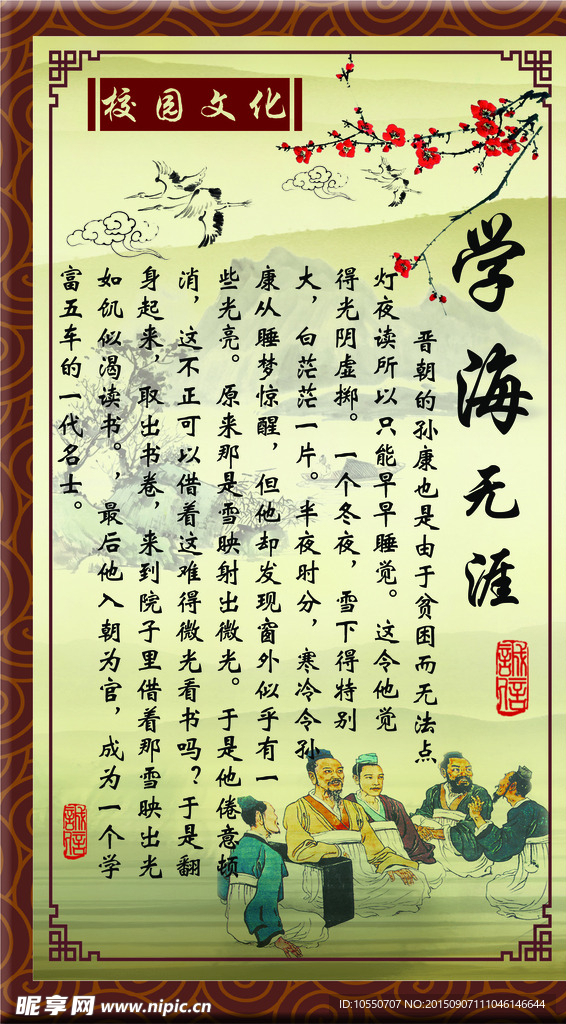 校园文化
学海无涯
晋朝的孙康也是由于贫困而无法点
灯夜读所以只能早早睡觉。这令他觉
得光阴虚掷。一个冬夜，雪下得特别
大，白茫茫一片。半夜时分，寒冷令孙
康从睡梦惊醒，但他却发现窗外似乎有一
些光亮。原来那是雪映射出微光。于是他倦意顿
消，这不正可以借着这难得微光看书吗？于是翻
身起来，取出书卷，来到院子里借着那雪映出光
如饥似渴读书。，最后他入朝为官，成为一个学
富五车的一代名士。
誠信
誠信
昵享网 www.nipic.cn
ID:10550707 NO:20150907111046146644